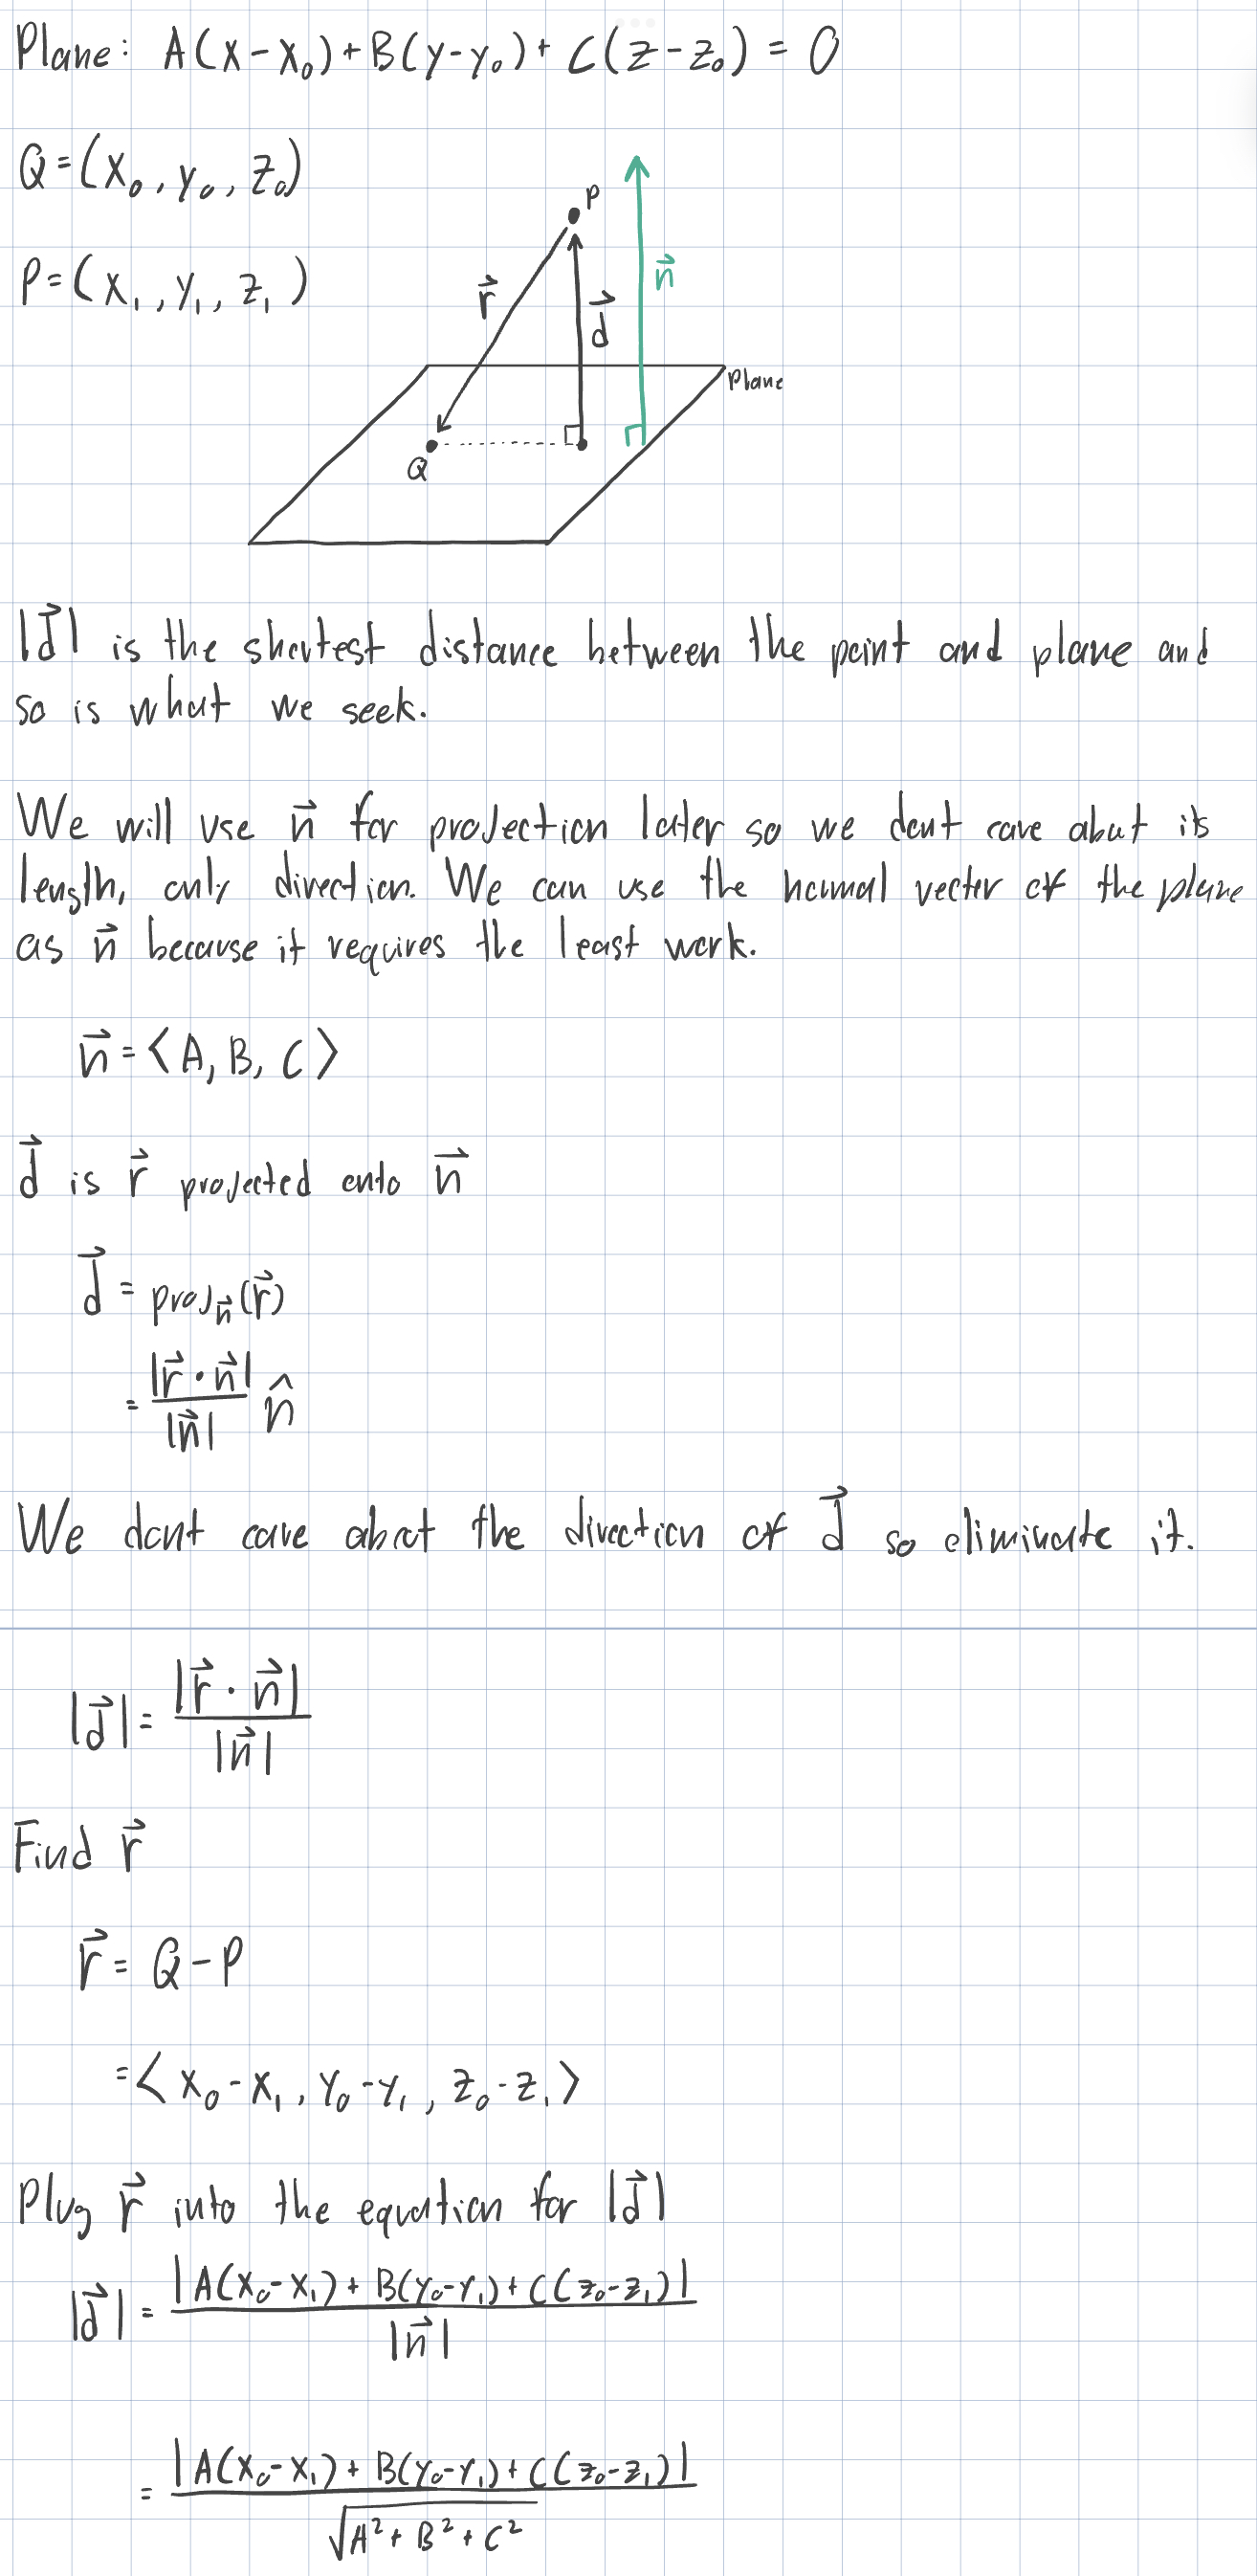 Plane: A(x-x₀)+B(y-y₀)+C(z-z₀)=0
Q=(x₀,y₀,z₀)
P
n⃗
P=(x₁,y₁,z₁)
r⃗
d⃗
Plane
Q
|d⃗| is the shortest distance between the point and plane and
so is what we seek.
We will use n⃗ for projection later so we dont care about its
length, only direction. We can use the normal vector of the plane
as n⃗ because it requires the least work.
n⃗=⟨A, B, C⟩
d⃗ is r⃗ projected onto n⃗
d⃗ = proj_n⃗(r⃗)
= |r⃗·n⃗|/|n⃗| n̂
We dont care about the direction of d⃗ so eliminate it.
|d⃗| = |r⃗·n⃗|/|n⃗|
Find r⃗
r⃗ = Q-P
=⟨x₀-x₁, y₀-y₁, z₀-z₁⟩
Plug r⃗ into the equation for |d⃗|
|d⃗| = |A(x₀-x₁)+B(y₀-y₁)+C(z₀-z₁)|/|n⃗|
= |A(x₀-x₁)+B(y₀-y₁)+C(z₀-z₁)|/√(A²+B²+C²)